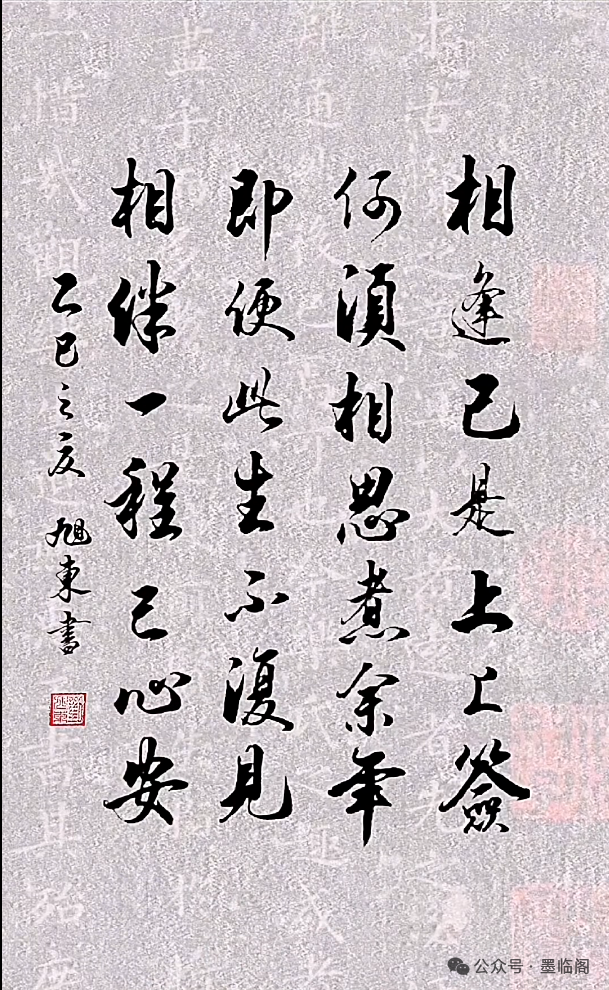 相逢已是上上簽
何須相思煮余年
即便此生不復見
相伴一程已心安
乙巳之夏 旭東書
公众号·墨临阁